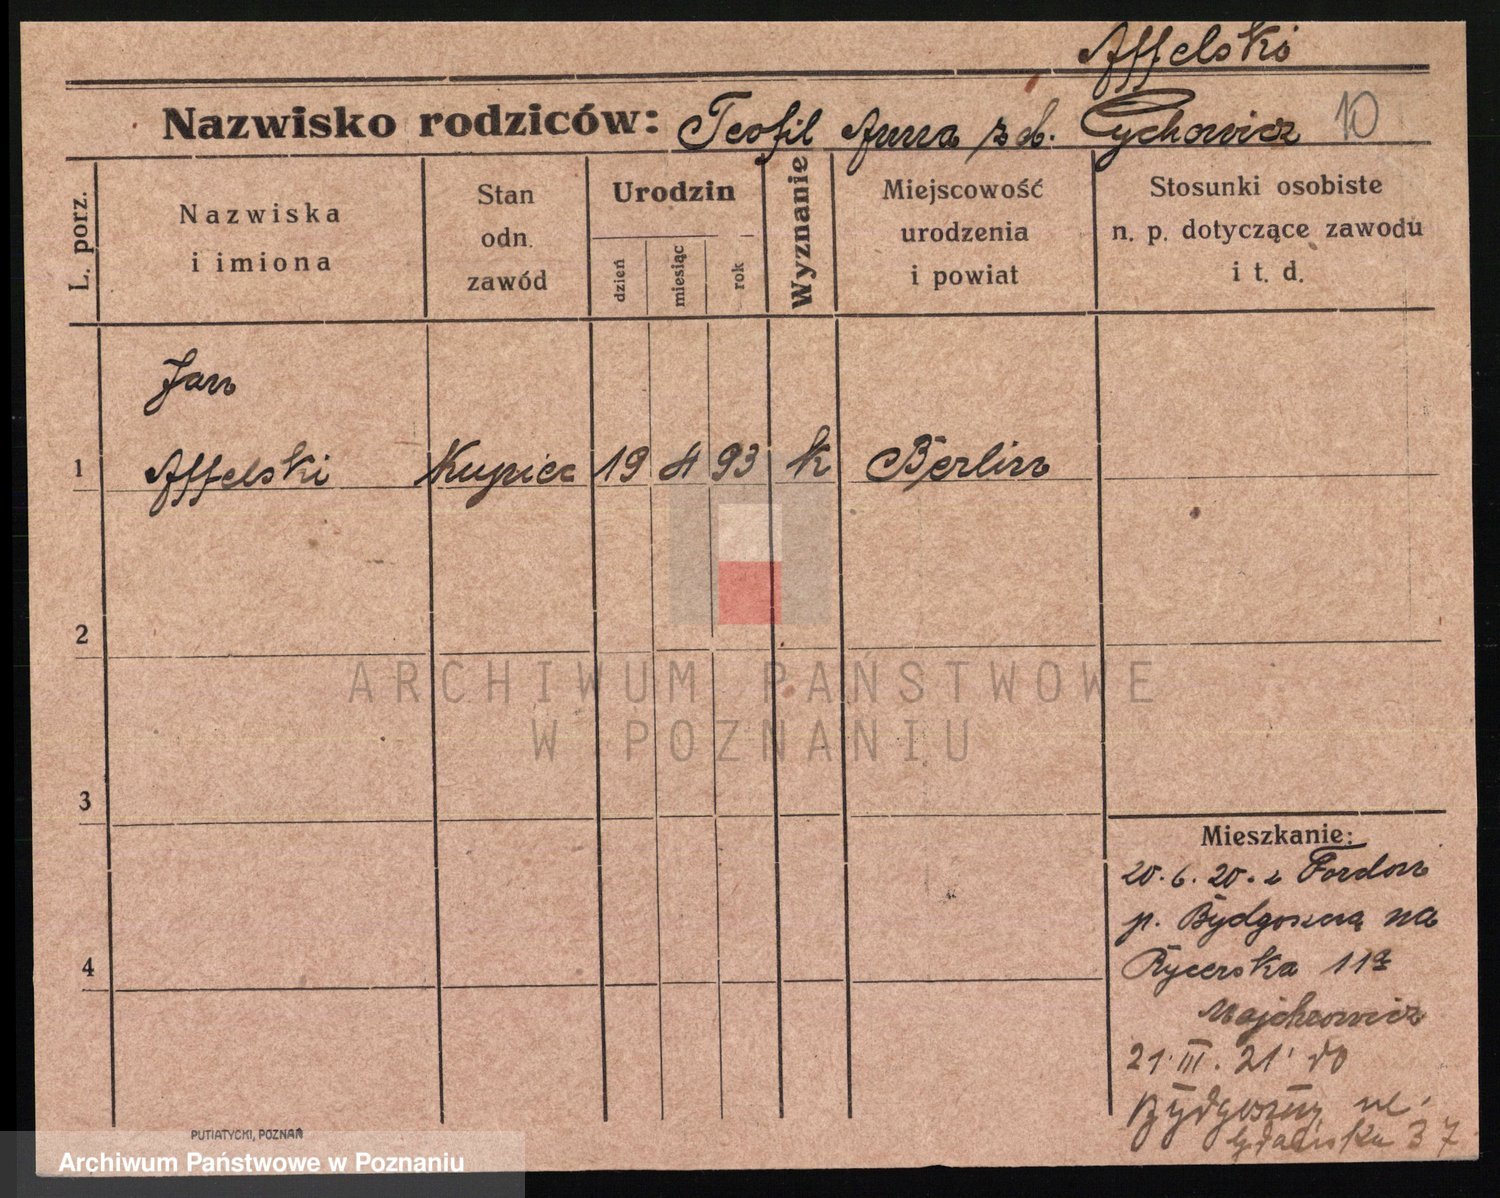 Affelski
Nazwisko rodziców: Teofil Anna z d. Cychowicz 10
L. porz.
Nazwiska
i imiona
Stan
odn.
zawód
Urodzin
dzień
miesiąc
rok
Wyznanie
Miejscowość
urodzenia
i powiat
Stosunki osobiste
n. p. dotyczące zawodu
i t. d.
Jan
1 Affelski Kupiec 19 4 93 k Berlin
2
ARCHIWUM PAŃSTWOWE
W POZNANIU
3
Mieszkanie:
20. 6. 20. z Fordon
p. Bydgoszcz na
4
Rycerska 11a
Majchrowicz
21. III. 21. do
Bydgoszczy ul.
Gdańska 37
PUTIATYCKI, POZNAŃ
Archiwum Państwowe w Poznaniu